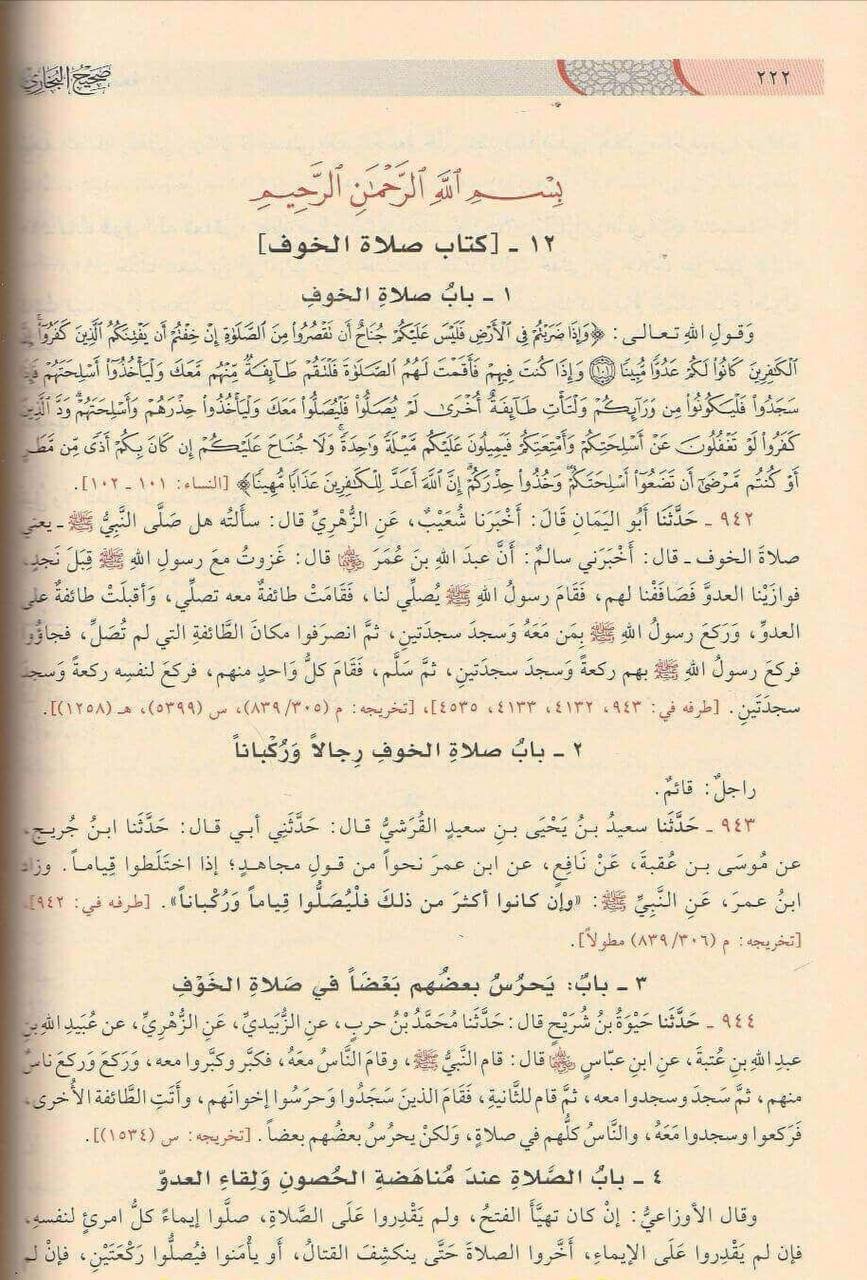 ٢٢٢
صحيح البخاري
بِسْمِ ٱللَّهِ ٱلرَّحْمَٰنِ ٱلرَّحِيمِ
١٢ ـ [كتاب صلاة الخوف]
١ ـ بابُ صلاةِ الخوفِ
وَقولِ اللهِ تعـالـى: ﴿وَإِذَا ضَرَبْتُمْ فِي ٱلْأَرْضِ فَلَيْسَ عَلَيْكُمْ جُنَاحٌ أَن تَقْصُرُوا۟ مِنَ ٱلصَّلَوٰةِ إِنْ خِفْتُمْ أَن يَفْتِنَكُمُ ٱلَّذِينَ كَفَرُوٓا۟
ٱلْكَٰفِرِينَ كَانُوا۟ لَكُمْ عَدُوًّا مُّبِينًا ۝١٠١ وَإِذَا كُنتَ فِيهِمْ فَأَقَمْتَ لَهُمُ ٱلصَّلَوٰةَ فَلْتَقُمْ طَآئِفَةٌ مِّنْهُم مَّعَكَ وَلْيَأْخُذُوٓا۟ أَسْلِحَتَهُمْ
سَجَدُوا۟ فَلْيَكُونُوا۟ مِن وَرَآئِكُمْ وَلْتَأْتِ طَآئِفَةٌ أُخْرَىٰ لَمْ يُصَلُّوا۟ فَلْيُصَلُّوا۟ مَعَكَ وَلْيَأْخُذُوا۟ حِذْرَهُمْ وَأَسْلِحَتَهُمْ وَدَّ ٱلَّذِينَ
كَفَرُوا۟ لَوْ تَغْفُلُونَ عَنْ أَسْلِحَتِكُمْ وَأَمْتِعَتِكُمْ فَيَمِيلُونَ عَلَيْكُم مَّيْلَةً وَٰحِدَةً وَلَا جُنَاحَ عَلَيْكُمْ إِن كَانَ بِكُمْ أَذًى مِّن مَّطَرٍ
أَوْ كُنتُم مَّرْضَىٰٓ أَن تَضَعُوٓا۟ أَسْلِحَتَكُمْ وَخُذُوا۟ حِذْرَكُمْ إِنَّ ٱللَّهَ أَعَدَّ لِلْكَٰفِرِينَ عَذَابًا مُّهِينًا﴾ [النساء: ١٠١ ـ ١٠٢].
٩٤٢ ـ حَدَّثَنا أَبو اليَمانِ قَالَ: أَخْبَرَنا شُعَيْبٌ، عَنِ الزُّهْرِيِّ قالَ: سألتُه هل صَلَّى النَّبِيُّ ﷺ ـ يعني
صلاةَ الخوفِ ـ قال: أَخْبَرَني سالمٌ: أَنَّ عبدَ اللهِ بنَ عُمَرَ ﵄ قال: غَزَوتُ معَ رسولِ اللهِ ﷺ قِبَلَ نَجدٍ،
فوازَيْنا العدوَّ فَصَافَفْنا لهم، فَقَامَ رسولُ اللهِ ﷺ يُصلِّي لنا، فَقَامَتْ طائفةٌ معه تصلِّي، وَأقبلَتْ طائفةٌ على
العدوِّ، وَرَكعَ رسولُ اللهِ ﷺ بِمَن مَعَهُ وَسجدَ سجدَتينِ، ثمَّ انصرَفوا مكانَ الطَّائفةِ التي لم تُصَلِّ، فجاؤُوا
فركعَ رسولُ اللهِ ﷺ بهم ركعةً وَسجدَ سجدَتَينِ، ثمَّ سَلَّم، فَقَامَ كلُّ وَاحدٍ منهم، فركعَ لنفسِه ركعةً وَسجد
سجدَتَينِ. [طرفه في: ٩٤٣، ٤١٣٢، ٤١٣٣، ٤٥٣٥]، [تخريجه: م (٨٣٩/٣٠٥)، س (٥٣٩٩)، هـ (١٢٥٨)].
٢ ـ بابُ صلاةِ الخوفِ رِجالاً وَرُكْباناً
راجلٌ: قائمٌ.
٩٤٣ ـ حَدَّثَنا سعيدُ بنُ يَحْيَى بنِ سعيدٍ القُرَشيُّ قالَ: حَدَّثَنِي أبي قال: حَدَّثَنا ابنُ جُريجٍ،
عن مُوسَى بـنِ عُقبةَ، عَنْ نَافِعٍ، عن ابن عمرَ نحواً من قولِ مجاهدٍ؛ إذا اختَلَطوا قِياماً. وزاد
ابنُ عمرَ، عَنِ النَّبِيِّ ﷺ: «وإن كانوا أكثرَ من ذلكَ فلْيُصَلُّوا قِياماً وَرُكْباناً». [طرفه في: ٩٤٢]،
[تخريجه: م (٨٣٩/٣٠٦) مطولاً].
٣ ـ بابٌ: يَحرُسُ بعضُهم بَعْضَاً في صَلاةِ الخَوْفِ
٩٤٤ ـ حَدَّثَنا حَيْوَةُ بنُ شُرَيْحٍ قال: حَدَّثَنا مُحَمَّدُ بْنُ حربٍ، عنِ الزُّبَيديِّ، عَنِ الزُّهْرِيِّ، عن عُبَيدِ اللهِ بنِ
عبدِ اللهِ بنِ عُتبةَ، عَنِ ابنِ عبّاسٍ ﵄ قالَ: قام النَّبيُّ ﷺ، وقامَ النَّاسُ مَعَهُ، فكبَّر وكبَّروا معه، وَركعَ وَركعَ ناسٌ
منهم، ثمَّ سَجدَ وسجدوا معه، ثمَّ قام للثَّانيةِ، فَقَامَ الذينَ سَجَدُوا وَحرَسُوا إخوانَهم، وأَتَتِ الطَّائفة الأُخرى،
فَرَكعوا وسجدوا مَعَهُ، والنَّاسُ كلُّهم في صلاةٍ، وَلكنْ يحرُسُ بعضُهم بعضاً. [تخريجه: س (١٥٣٤)].
٤ ـ بابُ الصَّلاةِ عندَ مُناهَضةِ الحُصونِ وَلِقاءِ العدوِّ
وقال الأوزاعيُّ: إنْ كان تهيَّأَ الفتحُ، ولم يَقْدِروا عَلَى الصَّلاةِ، صلَّوا إيماءً كلُّ امرئٍ لنفسهِ،
فإن لم يَقْدِروا عَلَى الإيماءِ، أَخَّروا الصلاةَ حَتَّى ينكشِفَ القتالُ، أو يأْمَنوا فيُصلُّوا رَكْعَتَيْنِ، فإنْ لم